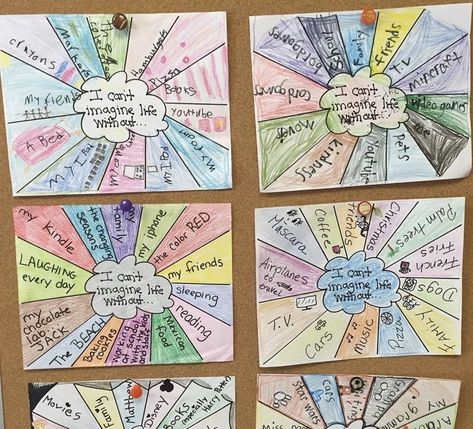 I can't
imagine life
without...
crayons
Markers
the
Hamburgers
Pizza
Books
Youtube
my room
my IPod
my I Pad
A Bed
my friends
I can't
imagine life
without...
family
friends
T.V
Video games
Pets
Youtube
Kindness
Moves
I can't
imagine life
without...
my Kindle
the changing
seasons
my
family
my iphone
the color RED
my friends
sleeping
reading
Mexican
food
working
at school
with the kids
Bacon
cookies
The BEACH
my
chocolate
lab
JACK
LAUGHING
every day
I can't
imagine life
without...
Mascara
Coffee
friends
Christmas
Palm trees
French
fries
Dogs
FAMILY
Pizza
Music
Cars
T.V.
Airplanes
to
travel
Movies
Family
Matthew
Disney
Books
(especially
Harry Potter)
Star Wars
Cars
my